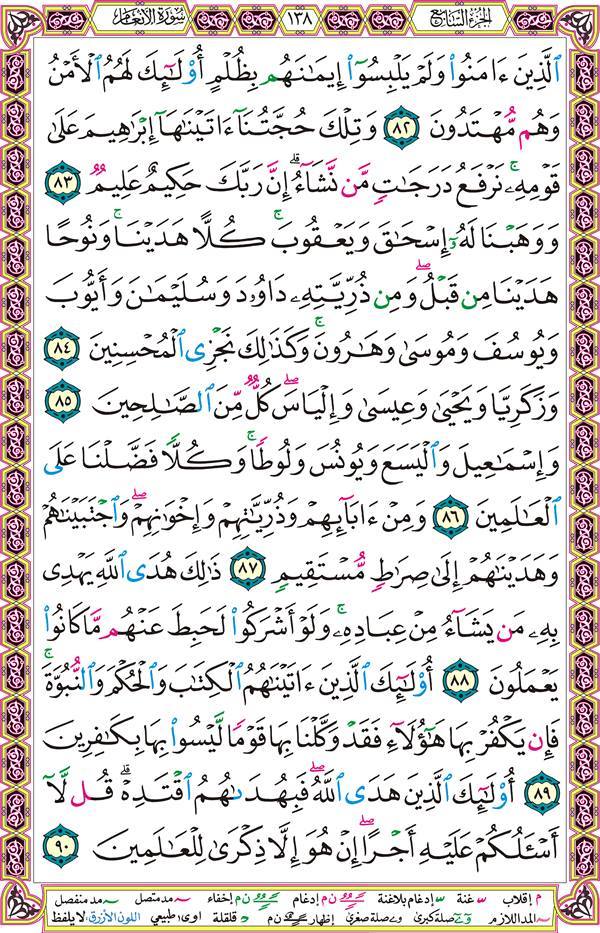 سورة الأنعام ١٣٨ الجزء السابع
ٱلَّذِينَ ءَامَنُواْ وَلَمۡ يَلۡبِسُوٓاْ إِيمَٰنَهُم بِظُلۡمٍ أُوْلَٰٓئِكَ لَهُمُ ٱلۡأَمۡنُ
وَهُم مُّهۡتَدُونَ ٨٢ وَتِلۡكَ حُجَّتُنَآ ءَاتَيۡنَٰهَآ إِبۡرَٰهِيمَ عَلَىٰ
قَوۡمِهِۦۚ نَرۡفَعُ دَرَجَٰتٖ مَّن نَّشَآءُۗ إِنَّ رَبَّكَ حَكِيمٌ عَلِيمٞ ٨٣
وَوَهَبۡنَا لَهُۥٓ إِسۡحَٰقَ وَيَعۡقُوبَۚ كُلًّا هَدَيۡنَاۚ وَنُوحًا
هَدَيۡنَا مِن قَبۡلُۖ وَمِن ذُرِّيَّتِهِۦ دَاوُۥدَ وَسُلَيۡمَٰنَ وَأَيُّوبَ
وَيُوسُفَ وَمُوسَىٰ وَهَٰرُونَۚ وَكَذَٰلِكَ نَجۡزِي ٱلۡمُحۡسِنِينَ ٨٤
وَزَكَرِيَّا وَيَحۡيَىٰ وَعِيسَىٰ وَإِلۡيَاسَۖ كُلّٞ مِّنَ ٱلصَّٰلِحِينَ ٨٥
وَإِسۡمَٰعِيلَ وَٱلۡيَسَعَ وَيُونُسَ وَلُوطٗاۚ وَكُلّٗا فَضَّلۡنَا عَلَى
ٱلۡعَٰلَمِينَ ٨٦ وَمِنۡ ءَابَآئِهِمۡ وَذُرِّيَّٰتِهِمۡ وَإِخۡوَٰنِهِمۡۖ وَٱجۡتَبَيۡنَٰهُمۡ
وَهَدَيۡنَٰهُمۡ إِلَىٰ صِرَٰطٖ مُّسۡتَقِيمٖ ٨٧ ذَٰلِكَ هُدَى ٱللَّهِ يَهۡدِي
بِهِۦ مَن يَشَآءُ مِنۡ عِبَادِهِۦۚ وَلَوۡ أَشۡرَكُواْ لَحَبِطَ عَنۡهُم مَّا كَانُواْ
يَعۡمَلُونَ ٨٨ أُوْلَٰٓئِكَ ٱلَّذِينَ ءَاتَيۡنَٰهُمُ ٱلۡكِتَٰبَ وَٱلۡحُكۡمَ وَٱلنُّبُوَّةَۚ
فَإِن يَكۡفُرۡ بِهَا هَٰٓؤُلَآءِ فَقَدۡ وَكَّلۡنَا بِهَا قَوۡمٗا لَّيۡسُواْ بِهَا بِكَٰفِرِينَ
٨٩ أُوْلَٰٓئِكَ ٱلَّذِينَ هَدَى ٱللَّهُۖ فَبِهُدَىٰهُمُ ٱقۡتَدِهۡۗ قُل لَّآ
أَسۡـَٔلُكُمۡ عَلَيۡهِ أَجۡرًاۖ إِنۡ هُوَ إِلَّا ذِكۡرَىٰ لِلۡعَٰلَمِينَ ٩٠
م إقلاب غنة إدغام بلاغنة ن م إدغام إخفاء مد متصل مد منفصل
المد اللازم صلة كبرى صلة صغرى إظهار ن م قلقلة اوى طبيعي اللون الأزرق: لا يلفظ